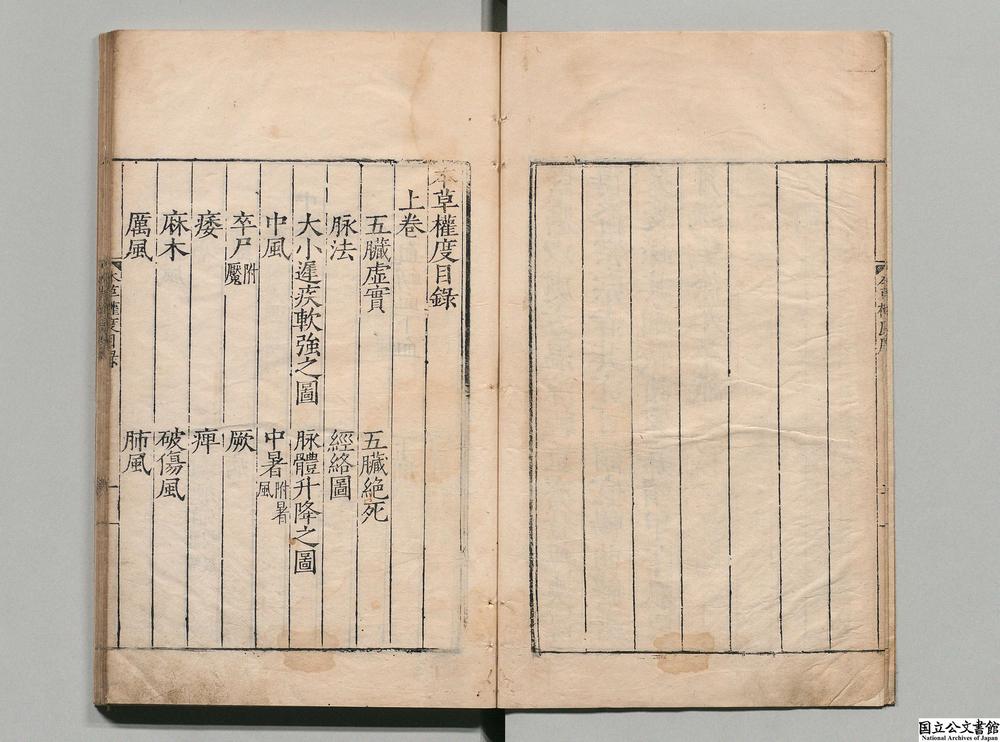 本草權度目錄
上卷
五臟虛實　五臟絶死
脉法　經絡圖
大小遲疾軟強之圖　脉體升降之圖
中風　中暑附暑風
卒尸附魘　厥
痿　痺
麻木　破傷風
厲風　肺風
本草權度目録
国立公文書館
National Archives of Japan